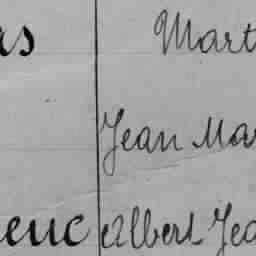 as Mart
Jean Mar
euc Albert Jea